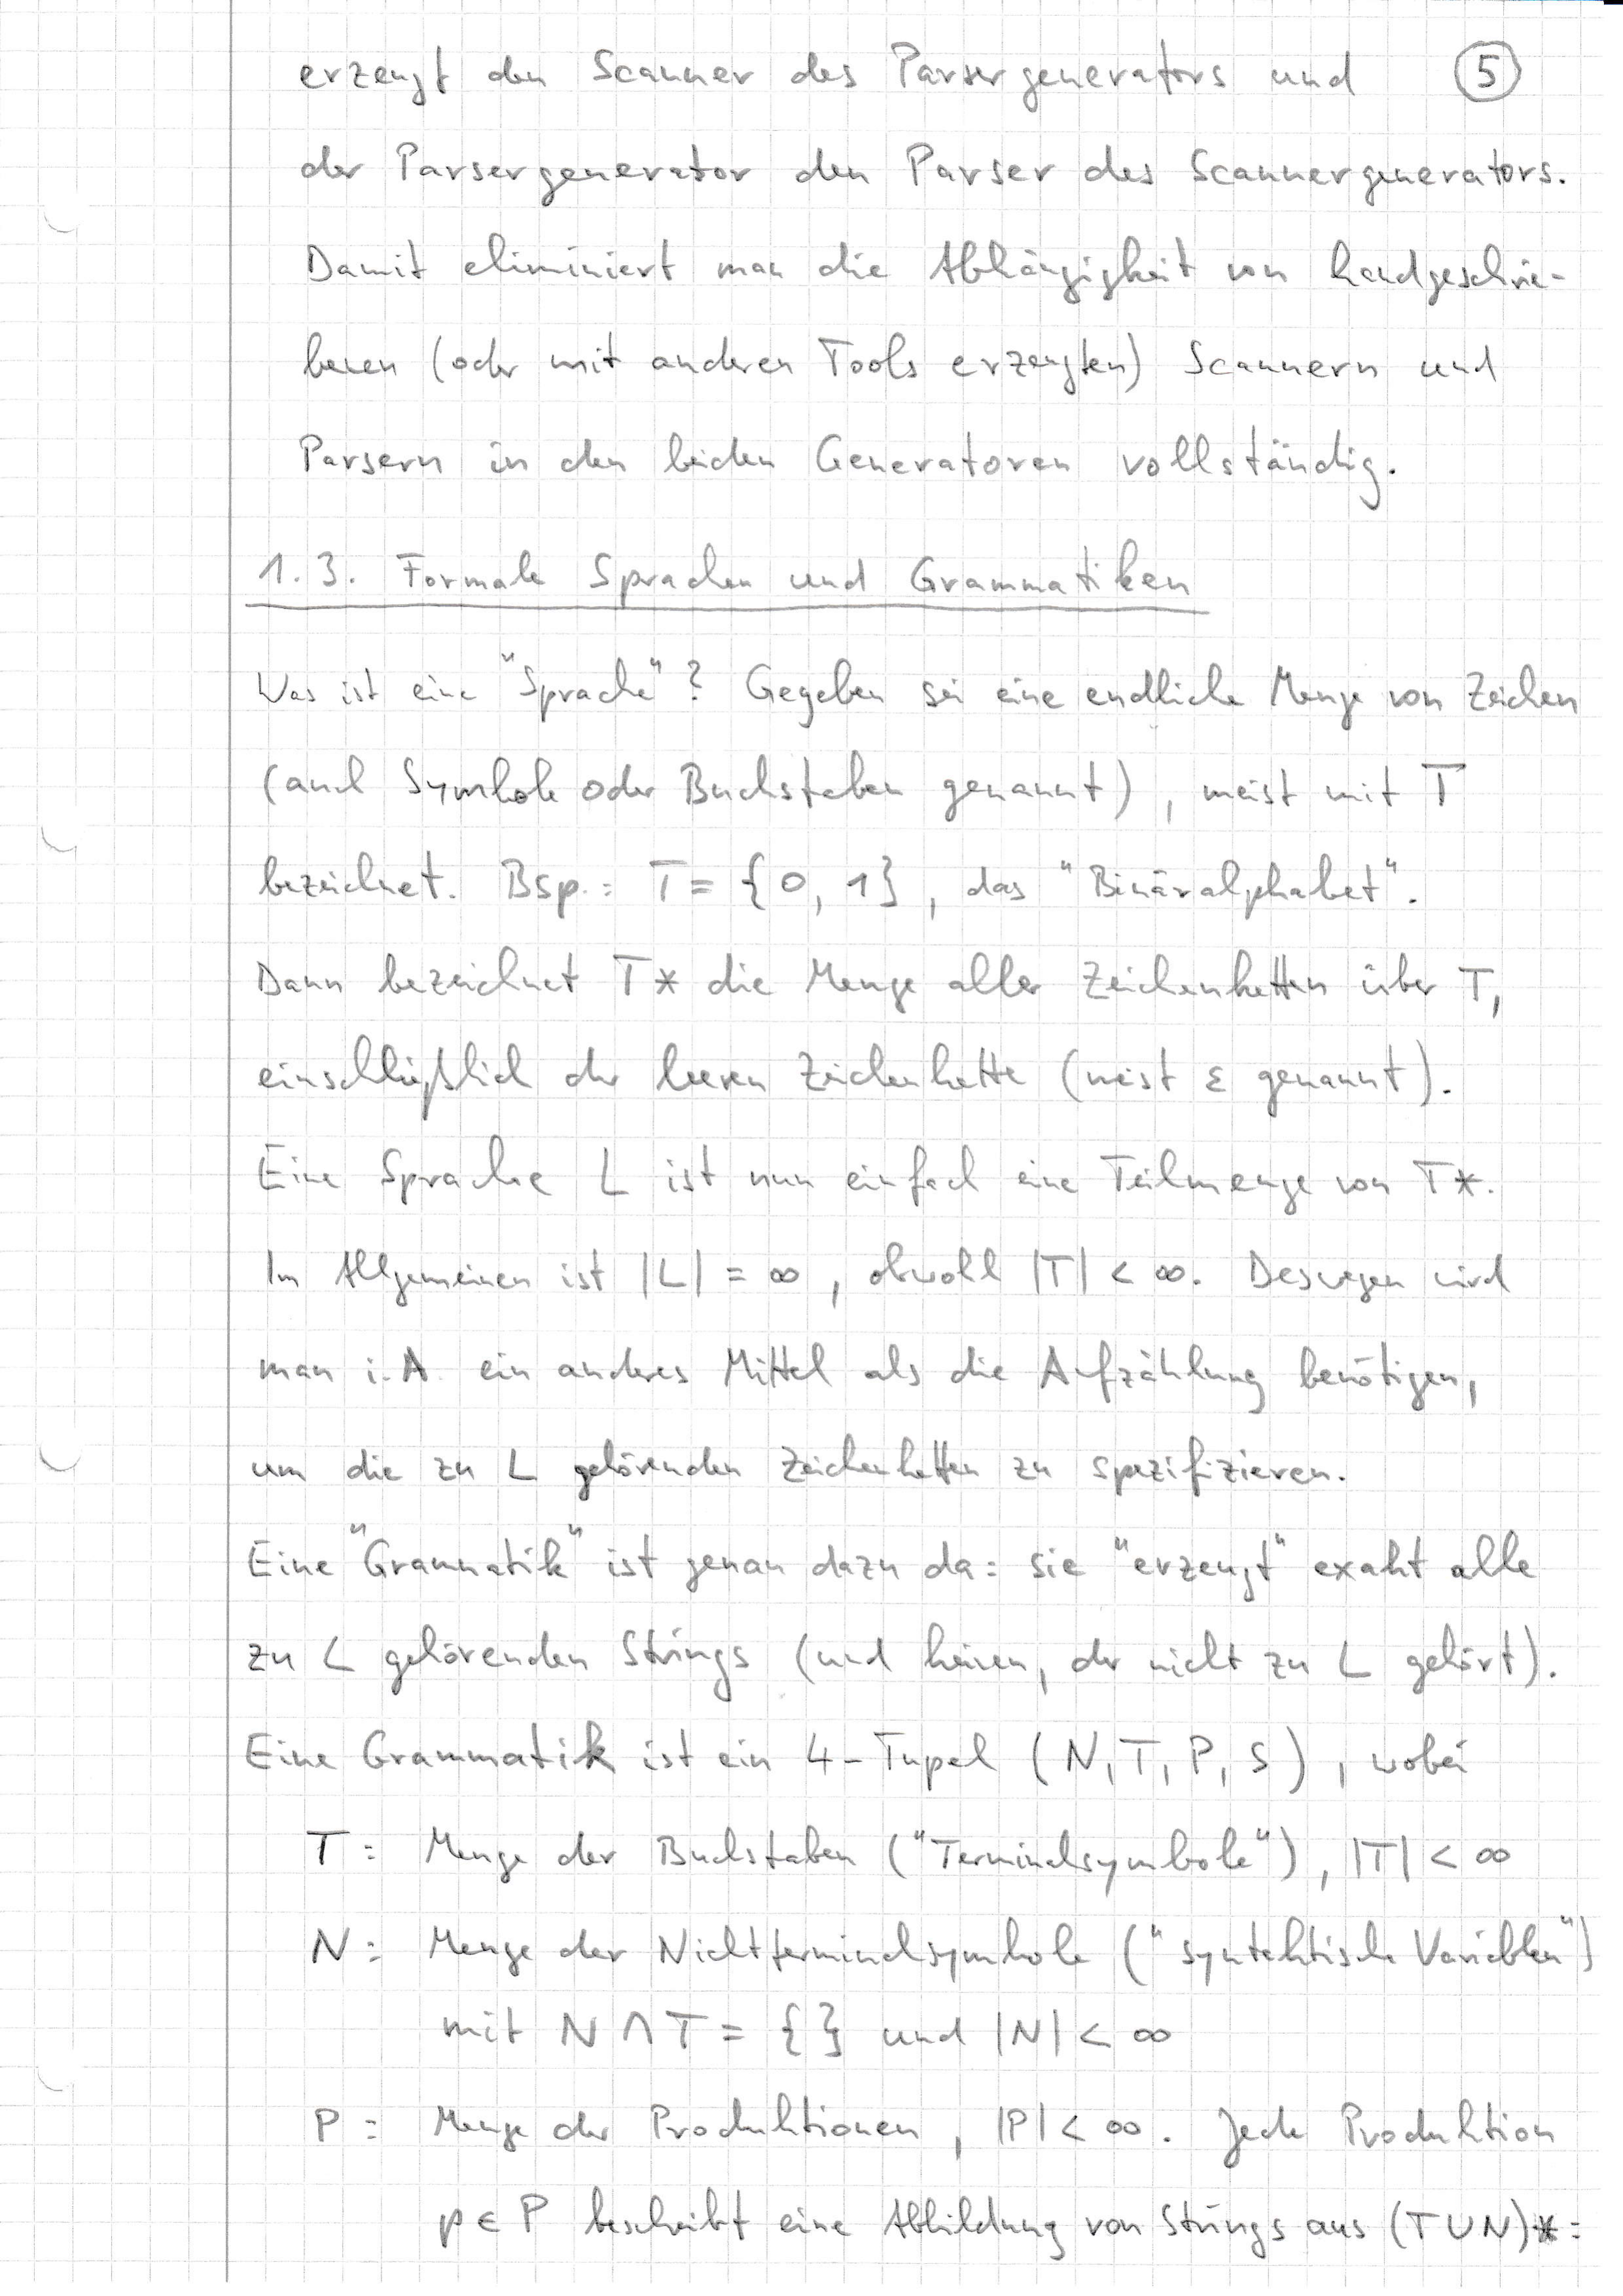 erzeugt den Scanner des Parsergenerators und ⑤
der Parsergenerator den Parser des Scannergenerators.
Damit eliminiert man die Abhängigkeit von handgeschrie-
benen (oder mit anderen Tools erzeugten) Scannern und
Parsern in den beiden Generatoren vollständig.
1.3. Formale Sprachen und Grammatiken
Was ist eine "Sprache"? Gegeben sei eine endliche Menge von Zeichen
(auch Symbole oder Buchstaben genannt), meist mit T
bezeichnet. Bsp.: T = {0, 1}, das "Binäralphabet".
Dann bezeichnet T* die Menge aller Zeichenketten über T,
einschließlich der leeren Zeichenkette (meist ε genannt).
Eine Sprache L ist nun einfach eine Teilmenge von T*.
Im Allgemeinen ist |L| = ∞, obwohl |T| < ∞. Deswegen wird
man i.A. ein anderes Mittel als die Aufzählung benötigen,
um die zu L gehörenden Zeichenketten zu spezifizieren.
Eine "Grammatik" ist genau dazu da: sie "erzeugt" exakt alle
zu L gehörenden Strings (und keinen, der nicht zu L gehört).
Eine Grammatik ist ein 4-Tupel (N, T, P, S), wobei
T: Menge der Buchstaben ("Terminalsymbole"), |T| < ∞
N: Menge der Nichtterminalsymbole ("syntaktische Variablen")
mit N ∩ T = {} und |N| < ∞
P: Menge der Produktionen, |P| < ∞. Jede Produktion
p ∈ P beschreibt eine Abbildung von Strings aus (T ∪ N)*: